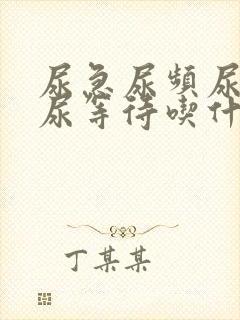 尿急尿频尿
尿等待喫什
丁某某